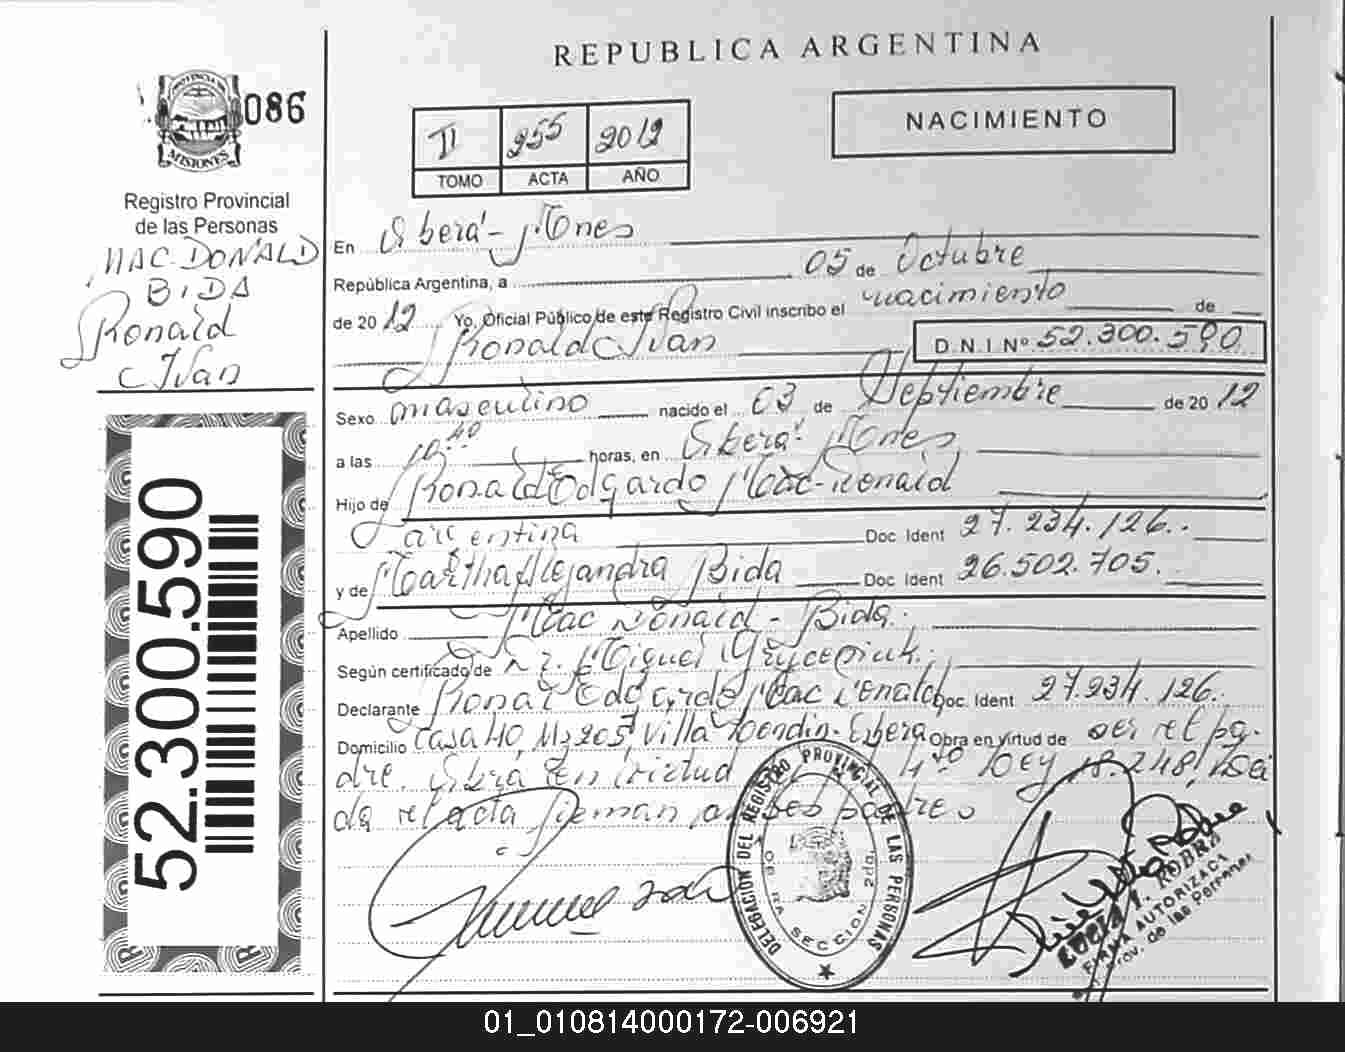 REPUBLICA ARGENTINA
PROVINCIA DE
MISIONES
086
Registro Provincial
de las Personas
MAC DONALD
BIDA
Ronald
Ivan
52.300.590
II 255 2012
TOMO ACTA AÑO
NACIMIENTO
En Oberá - Mnes
República Argentina, a 05 de Octubre
de 2012 Yo, Oficial Público de este Registro Civil inscribo el nacimiento de
Ronald Ivan D N I Nº 52.300.590
Sexo masculino nacido el 03 de Septiembre de 2012
a las 10:40 horas, en Oberá Mnes
Hijo de Ronald Edgardo Mac Donald
argentina Doc Ident 27.234.126
y de Martha Alejandra Bida Doc Ident 26.502.705
Apellido Mac Donald - Bida
Según certificado de Dr. Miguel
Declarante Ronal Edgardo Mac Donald Doc. Ident 27.234.126
Domicilio Casa 40, Mz 205, Villa Oberá Obra en virtud de ser el pa-
dre. Obra en virtud 4to Ley 18.248, Leí
da el acta firman ambos padres
DELEGACION DEL REGISTRO PROVINCIAL DE LAS PERSONAS
OBERA SECCION 2da.
ROBRA
FIRMA AUTORIZADA
Prov. de las Personas
01_010814000172-006921